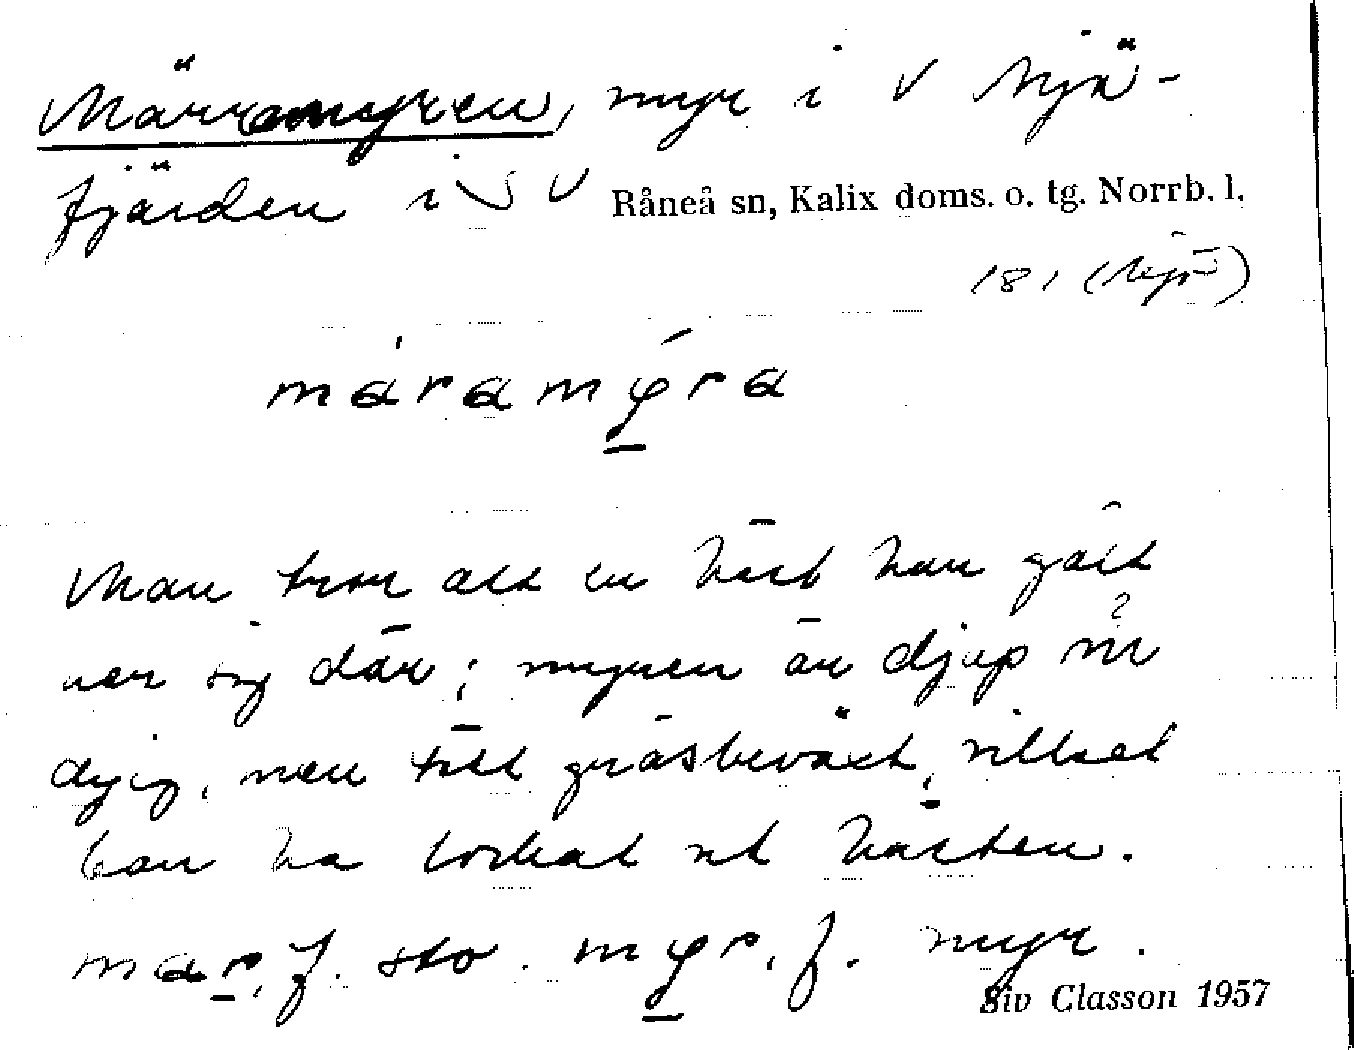 Märramyren, myr i V Njä-
fjärden i SV Råneå sn, Kalix doms. o. tg. Norrb. l.
181 (Njä)
máramýra
Man tror att en häst har gått
ner sig där; myren är djup och
dyig, men tätt gräsbeväxt, vilket
kan ha lockat ut hästen.
mar, f. sto. myr, f. myr.
Siv Classon 1957